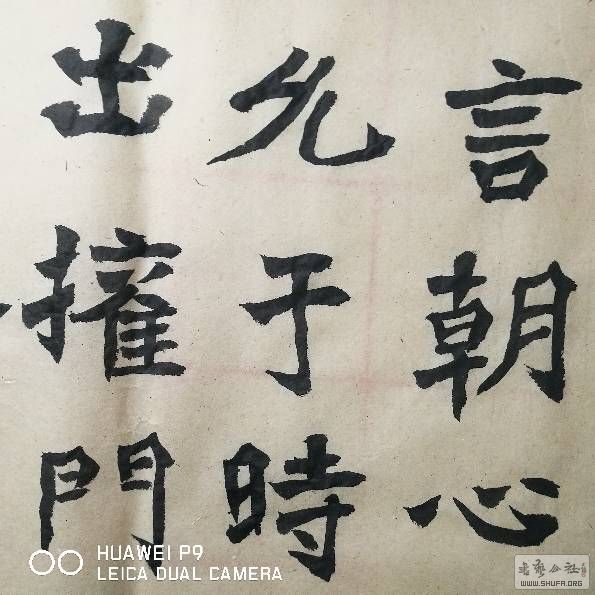 言朝心
允于時
出擁門
HUAWEI P9
LEICA DUAL CAMERA
WWW.SHUFA.ORG